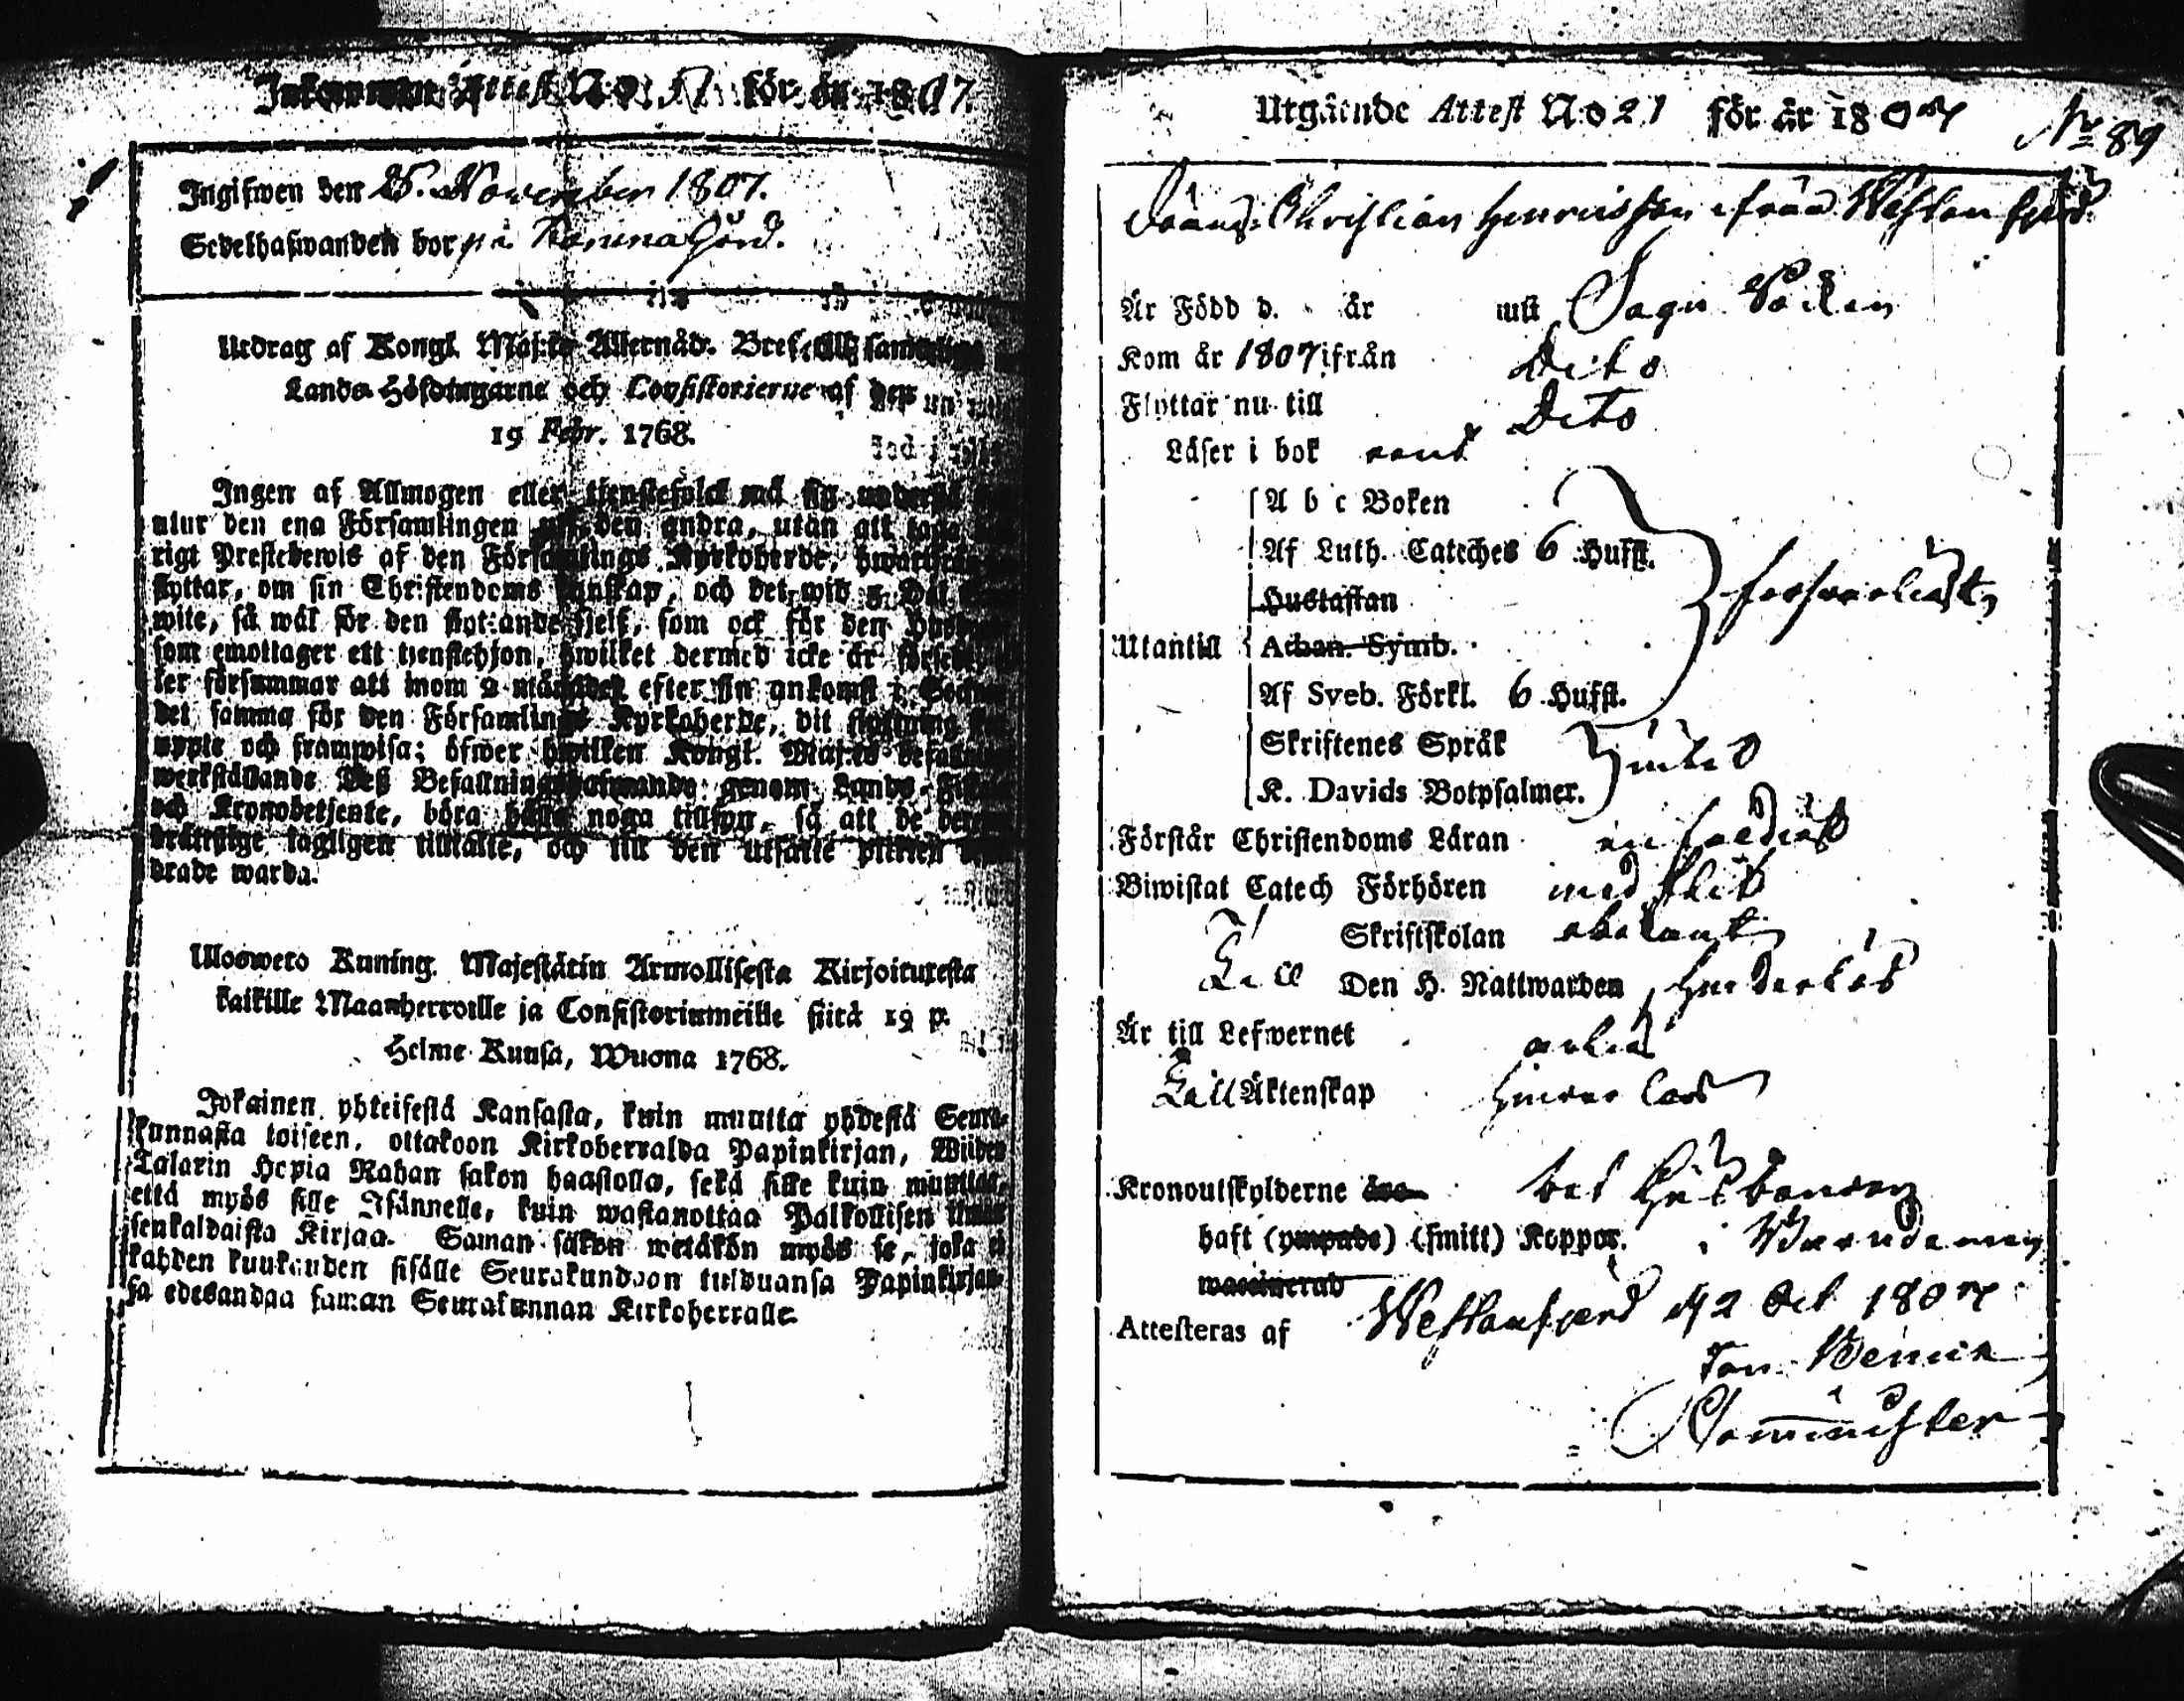 Inkommen Attest No 57 för år 1807.
Ingifwen den 25. November 1807.
Sedelhafwanden bor på Kamma Gård.
Utdrag af Kongl. Maj:ts Allernåd. Bref till samtelige
Lands-Höfdingarne och Consistorierne af den
19 Febr. 1768.
Ingen af Allmogen eller tienstefolck må sig
utur den ena Församlingen uti den andra, utan att taga
rigt Prestebewis af den Församlings Kyrkoherde, hwarifrån
flyttar, om sin Christendoms kunskap, och det wid 5 Dal.
wite, så wäl för den flyttande sjelf, som ock för den
som emottager ett tjenstehjon, hwilket dermed icke är
ler försummar att inom 2 månader efter sin ankomst i
det samma för den Församlings Kyrkoherde, dit
uppte och framwisa; öfwer hwilken Kongl. Maj:ts
werkställande Deß Befallningshafwande genom Lands-
och Kronobetjente, böra hålla noga tillsyn, så att de
lagligen tilltalte, och till den utsatte plikten
drade warda.
Ulosweto Kuning. Majestätin Armollisesta Kirjoituxesta
kaikille Maanherroille ja Consistoriumeille siitä 19 p.
Helme Kuusa, Wuona 1768.
Jokainen yhteisestä Kansasta, kuin muutta yhdestä Seura-
kunnasta toiseen, ottakoon Kirkoherralda Papinkirjan, Wiiden
Talarin Hopia Rahan sakon haastolla, sekä sille kuin muuttaa,
että myös sille Isännelle, kuin wastanottaa Palkollisen ilman
senkaldaista Kirjaa. Saman sakon wetäkön myös se, joka ei
kahden kuukauden sisälle Seurakundaan tulduansa Papinkirjan-
sa edesandaa saman Seurakunnan Kirkoherralle.
Utgående Attest No 21 för år 1807
No 89
Dräng Christian Henricsson ifrån Westanfjärd
Är Född d. år uti Sagu Sockn
Kom år 1807 ifrån Dito
Flyttar nu till Dito
Läser i bok rent
A b c Boken
Af Luth. Cateches 6 Hufst.
Hustaflan
Utantill Athan. Symb. försvarligt
Af Sveb. Förkl. 6 Hufst.
Skriftenes Språk
K. Davids Botpsalmer.
Förstår Christendoms Läran enfaldigt
Biwistat Catech Förhören med flit
Skriftskolan
Till Den H. Nattwarden Hinderlös
Är till Lefwernet ärlig
Till Äktenskap
Kronoutskylderne äro
haft (ympade) (smitt) Koppor.
waccinerad
Attesteras af Westanfjerd d 2 Oct 1807